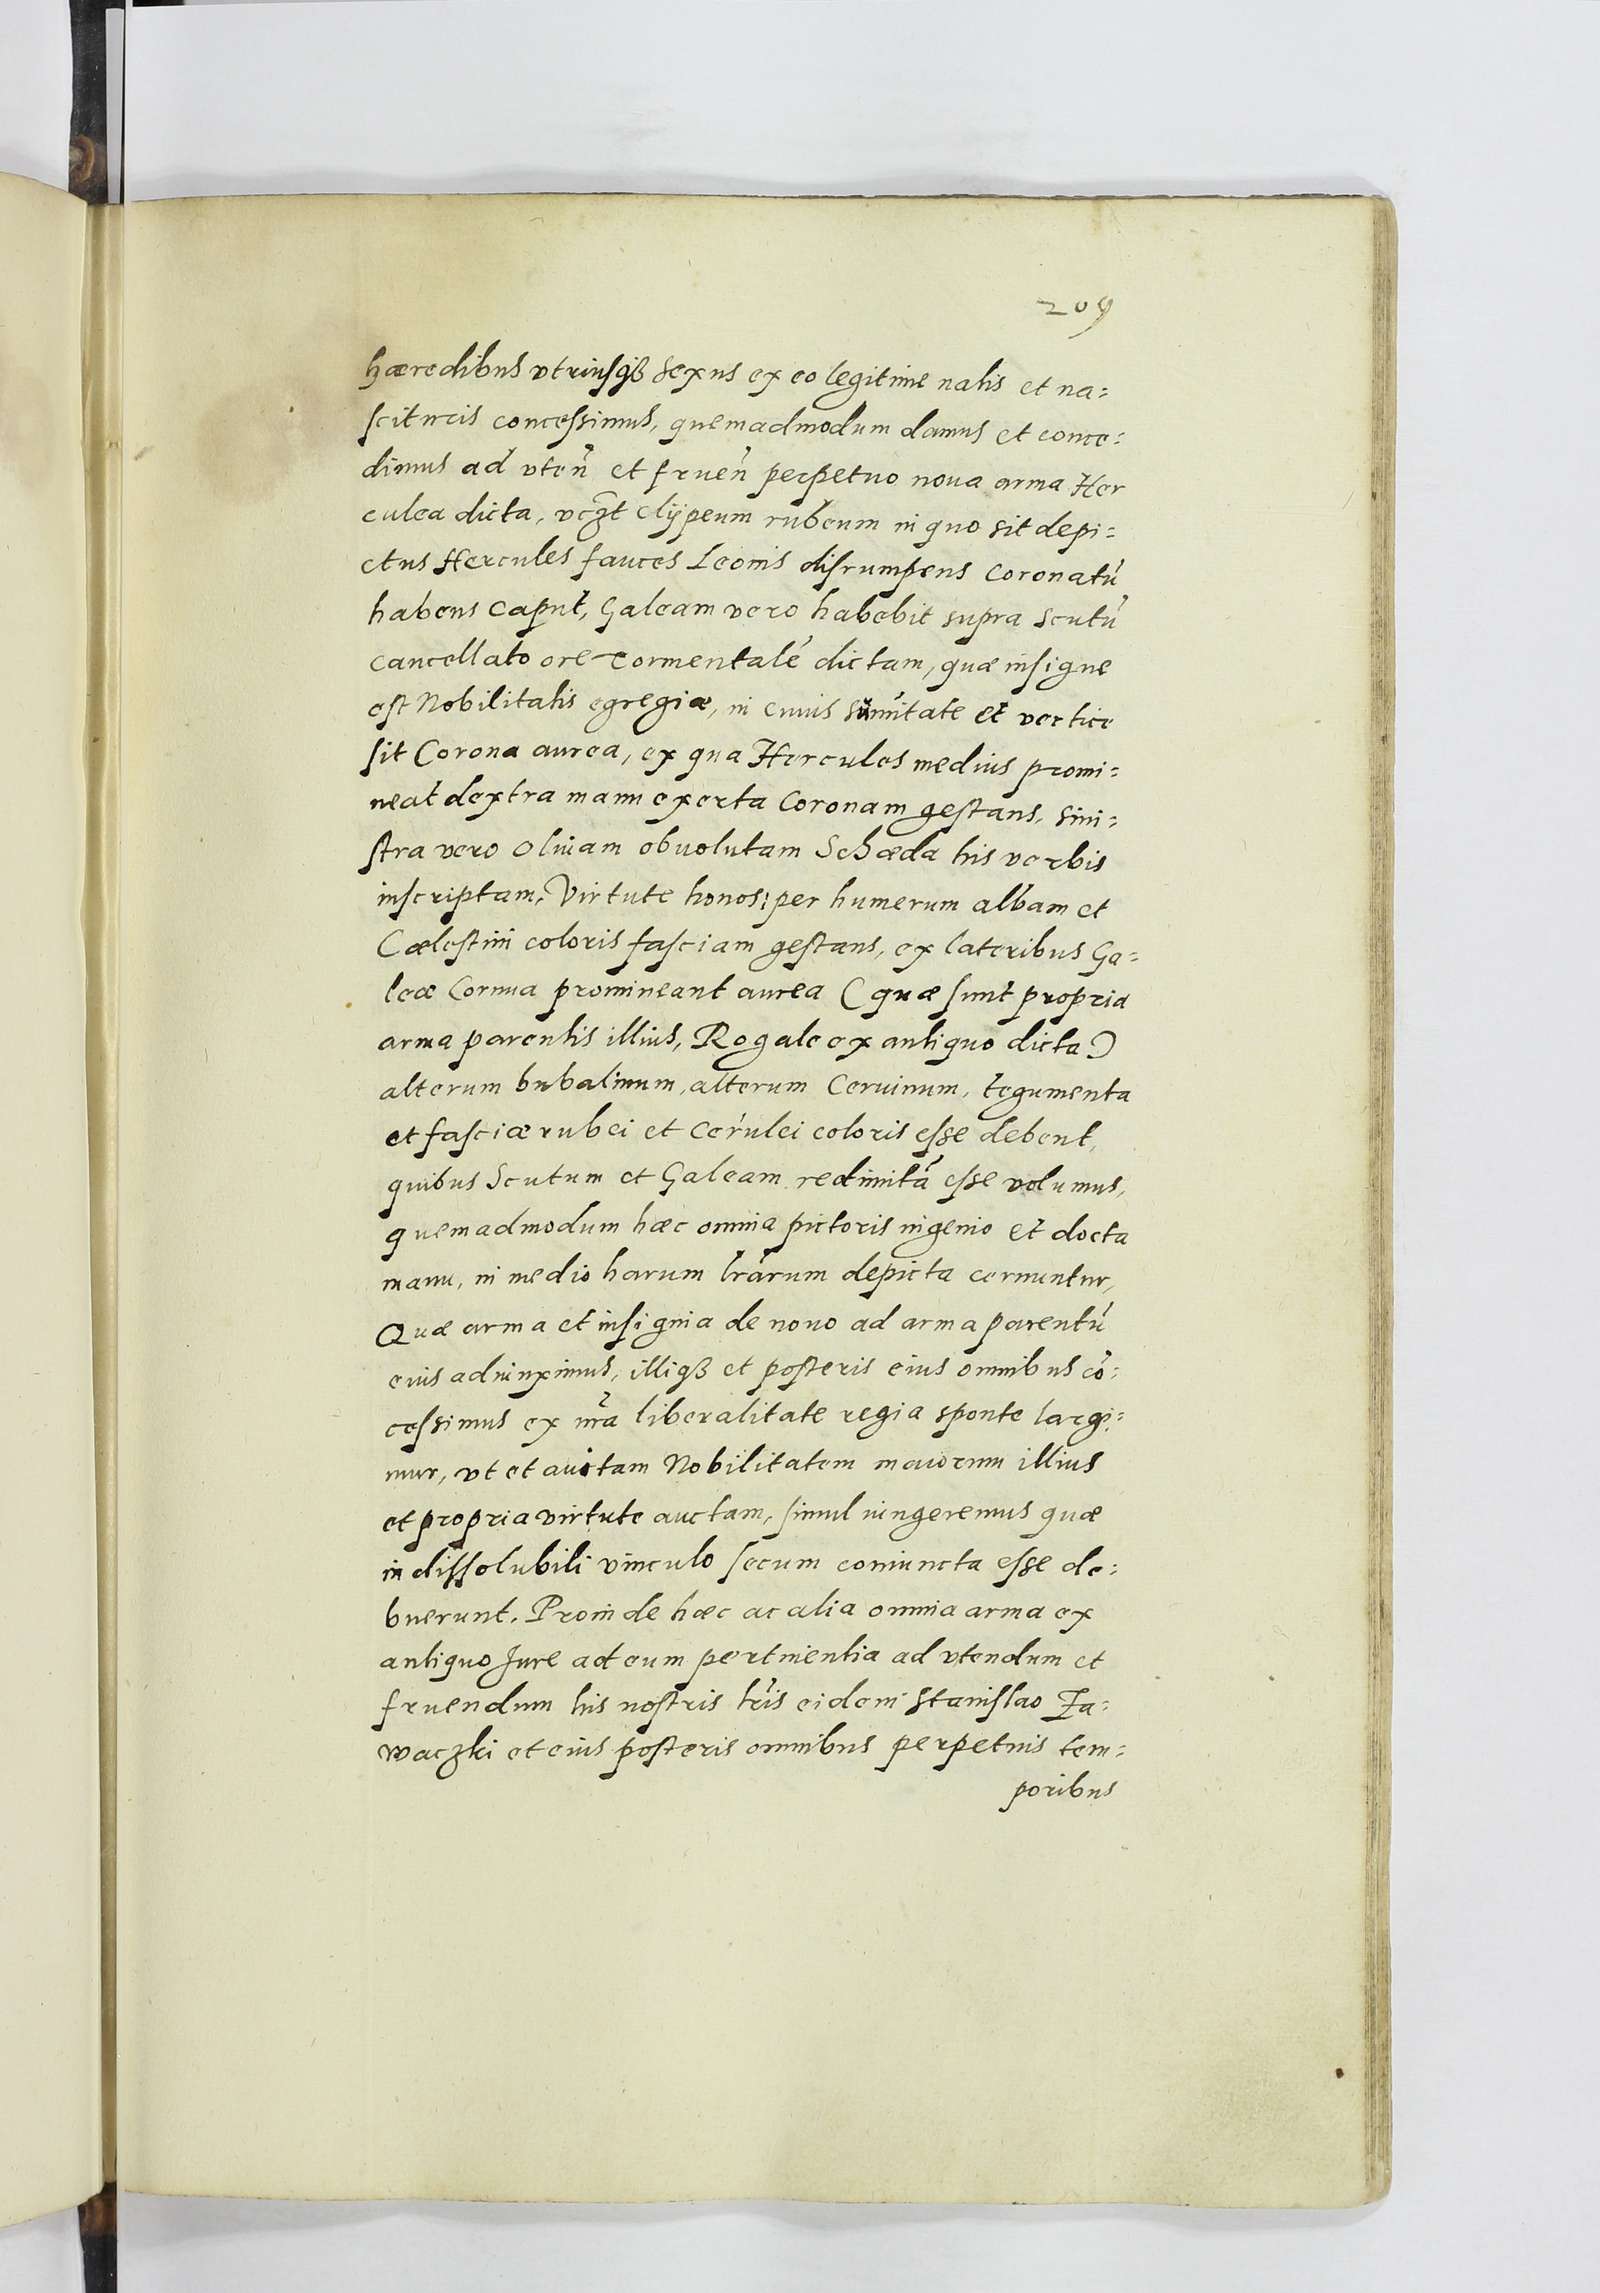 209
hæredibus vtriusqꝫ sexus ex eo legitime natis et na=
scituris concessimus, quemadmodum damus et conce=
dimus ad vteñ et frueñ perpetuo noua arma Her
culea dicta, vczt Clÿpeum rubeum in quo sit depi=
ctus Hercules fauces Leonis disrumpens Coronatū
habens Caput, Galeam vero habebit supra scutū
cancellato ore tormentalē dictam, quæ insigne
est Nobilitatis egregiæ, in cuius sūmitate et vertice
sit Corona aurea, ex qua Hercules medius promi=
neat dextra manu exerta Coronam gestans, sini=
stra vero Oliuam obuolutam Schæda his verbis
inscriptam, Virtute honos: per humerum albam et
Cælestini coloris fasciam gestans, ex lateribus Ga=
leæ Cornua promineant aurea (quæ sunt propria
arma parentis illius, Rogale ex antiquo dicta)
alterum bubalinum, alterum Ceruinum, tegumenta
et fasciæ rubei et Cerulei coloris esse debent,
quibus Scutum et Galeam redimitā esse volumus,
quemadmodum hæc omnia pictoris ingenio et docta
manu, in medio harum lrārum depicta cernuntur,
Quæ arma et insignia de nouo ad arma parentū
eius adiunximus, illiqꝫ et posteris eius omnibus cō=
cessimus ex nrā liberalitate regia sponte largi=
mur, vt et auitam Nobilitatem maiorum illius
et propria virtute auctam, simul iungeremus quæ
indissolubili vinculo secum coniuncta esse de=
buerunt. Proinde hæc ac alia omnia arma ex
antiquo Jure ad eum pertinentia ad vtendum et
fruendum his nostris lrīs eidem Stanislao Ża=
waczki et eius posteris omnibus perpetuis tem=
poribus